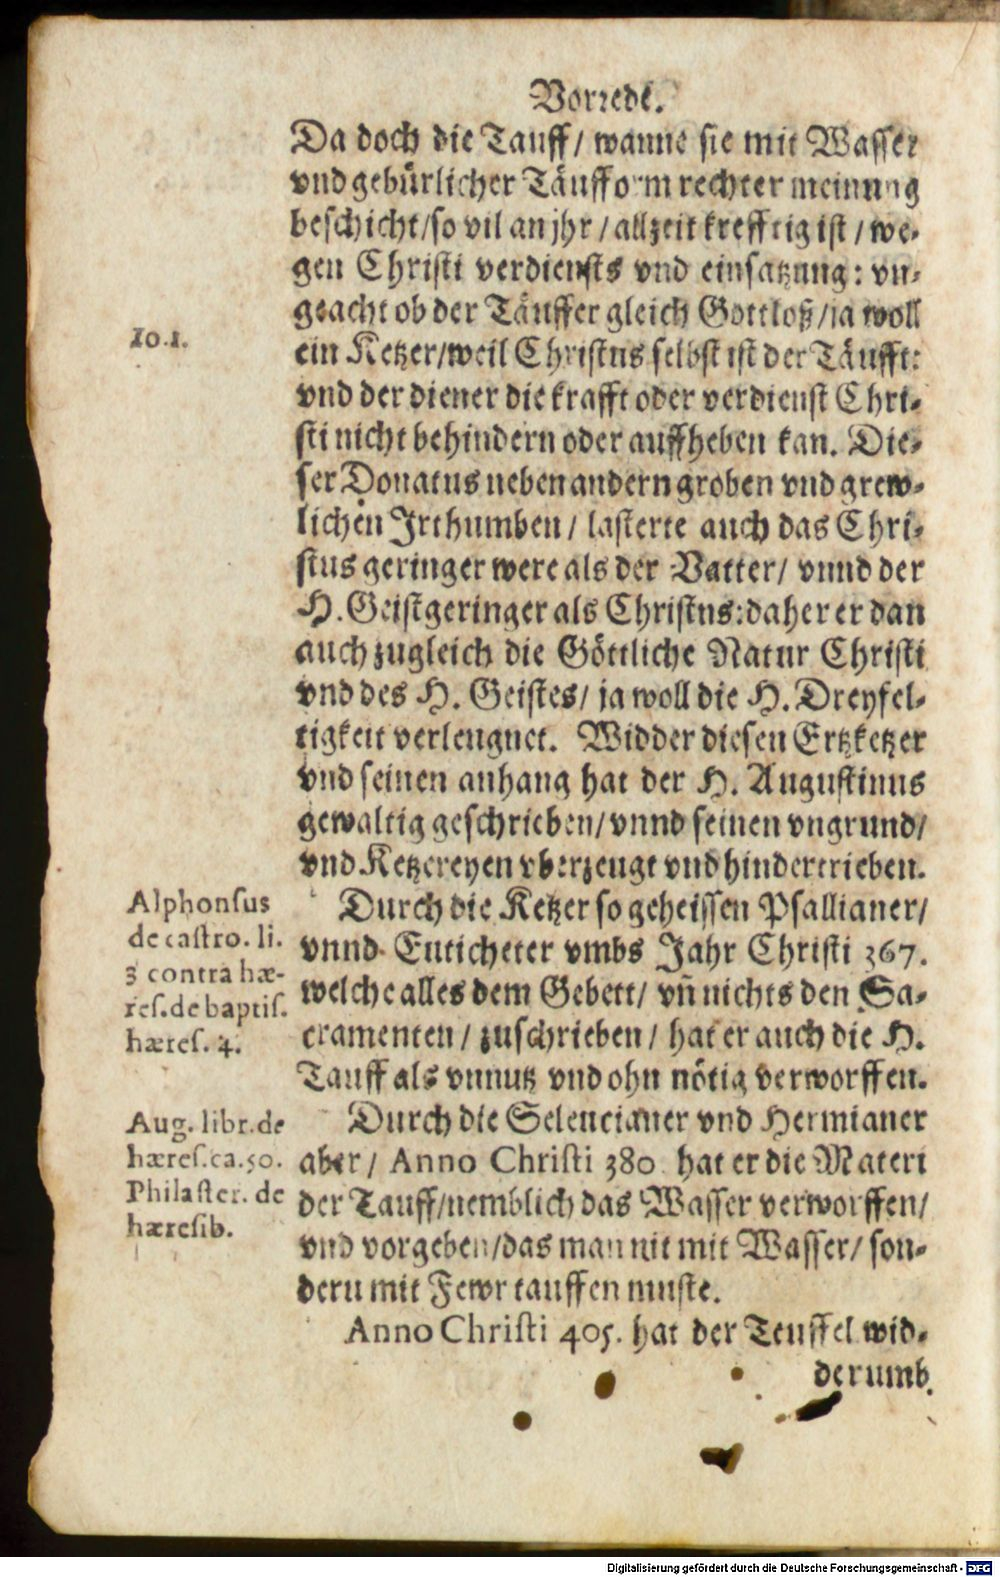 Vorrede.
Da doch die Tauff/ wanne sie mit Wasser
vnd gebürlicher Täufform rechter meinung
beschicht/so vil an jhr/allzeit krefftig ist/we-
gen Christi verdiensts vnd einsatzung: vn-
geacht ob der Täuffer gleich Gottloß/ja woll
Io.1.
ein Ketzer/weil Christus selbst ist der Täufft:
vnd der diener die krafft oder verdienst Chri-
sti nicht behindern oder auffheben kan. Die-
ser Donatus neben andern groben vnd grew-
lichen Irthumben/ lasterte auch das Chri-
stus geringer were als der Vatter/ vnnd der
H. Geist geringer als Christus: daher er dan
auch zugleich die Göttliche Natur Christi
vnd des H. Geistes/ ja woll die H. Dreyfel-
tigkeit verleugnet. Widder diesen Ertzketzer
vnd seinen anhang hat der H. Augustinus
gewaltig geschrieben/ vnnd seinen vngrund/
vnd Ketzereyen vberzeugt vnd hindertrieben.
Alphonsus
de castro. li.
3 contra hæ-
res. de baptis.
hæres. 4.
Durch die Ketzer so geheissen Psallianer/
vnnd Euticheter vmbs Jahr Christi 367.
welche alles dem Gebett/ vñ nichts den Sa-
cramenten/ zuschrieben/ hat er auch die H.
Tauff als vnnutz vnd ohn nötig verworffen.
Aug. libr. de
hæres. ca. 50.
Philaster. de
hæresib.
Durch die Seleucianer vnd Hermianer
aber/ Anno Christi 380 hat er die Materi
der Tauff/nemblich das Wasser verworffen/
vnd vorgeben/das man nit mit Wasser/ son-
dern mit Fewr tauffen muste.
Anno Christi 405. hat der Teuffel wid-
derumb
Digitalisierung gefördert durch die Deutsche Forschungsgemeinschaft - DFG